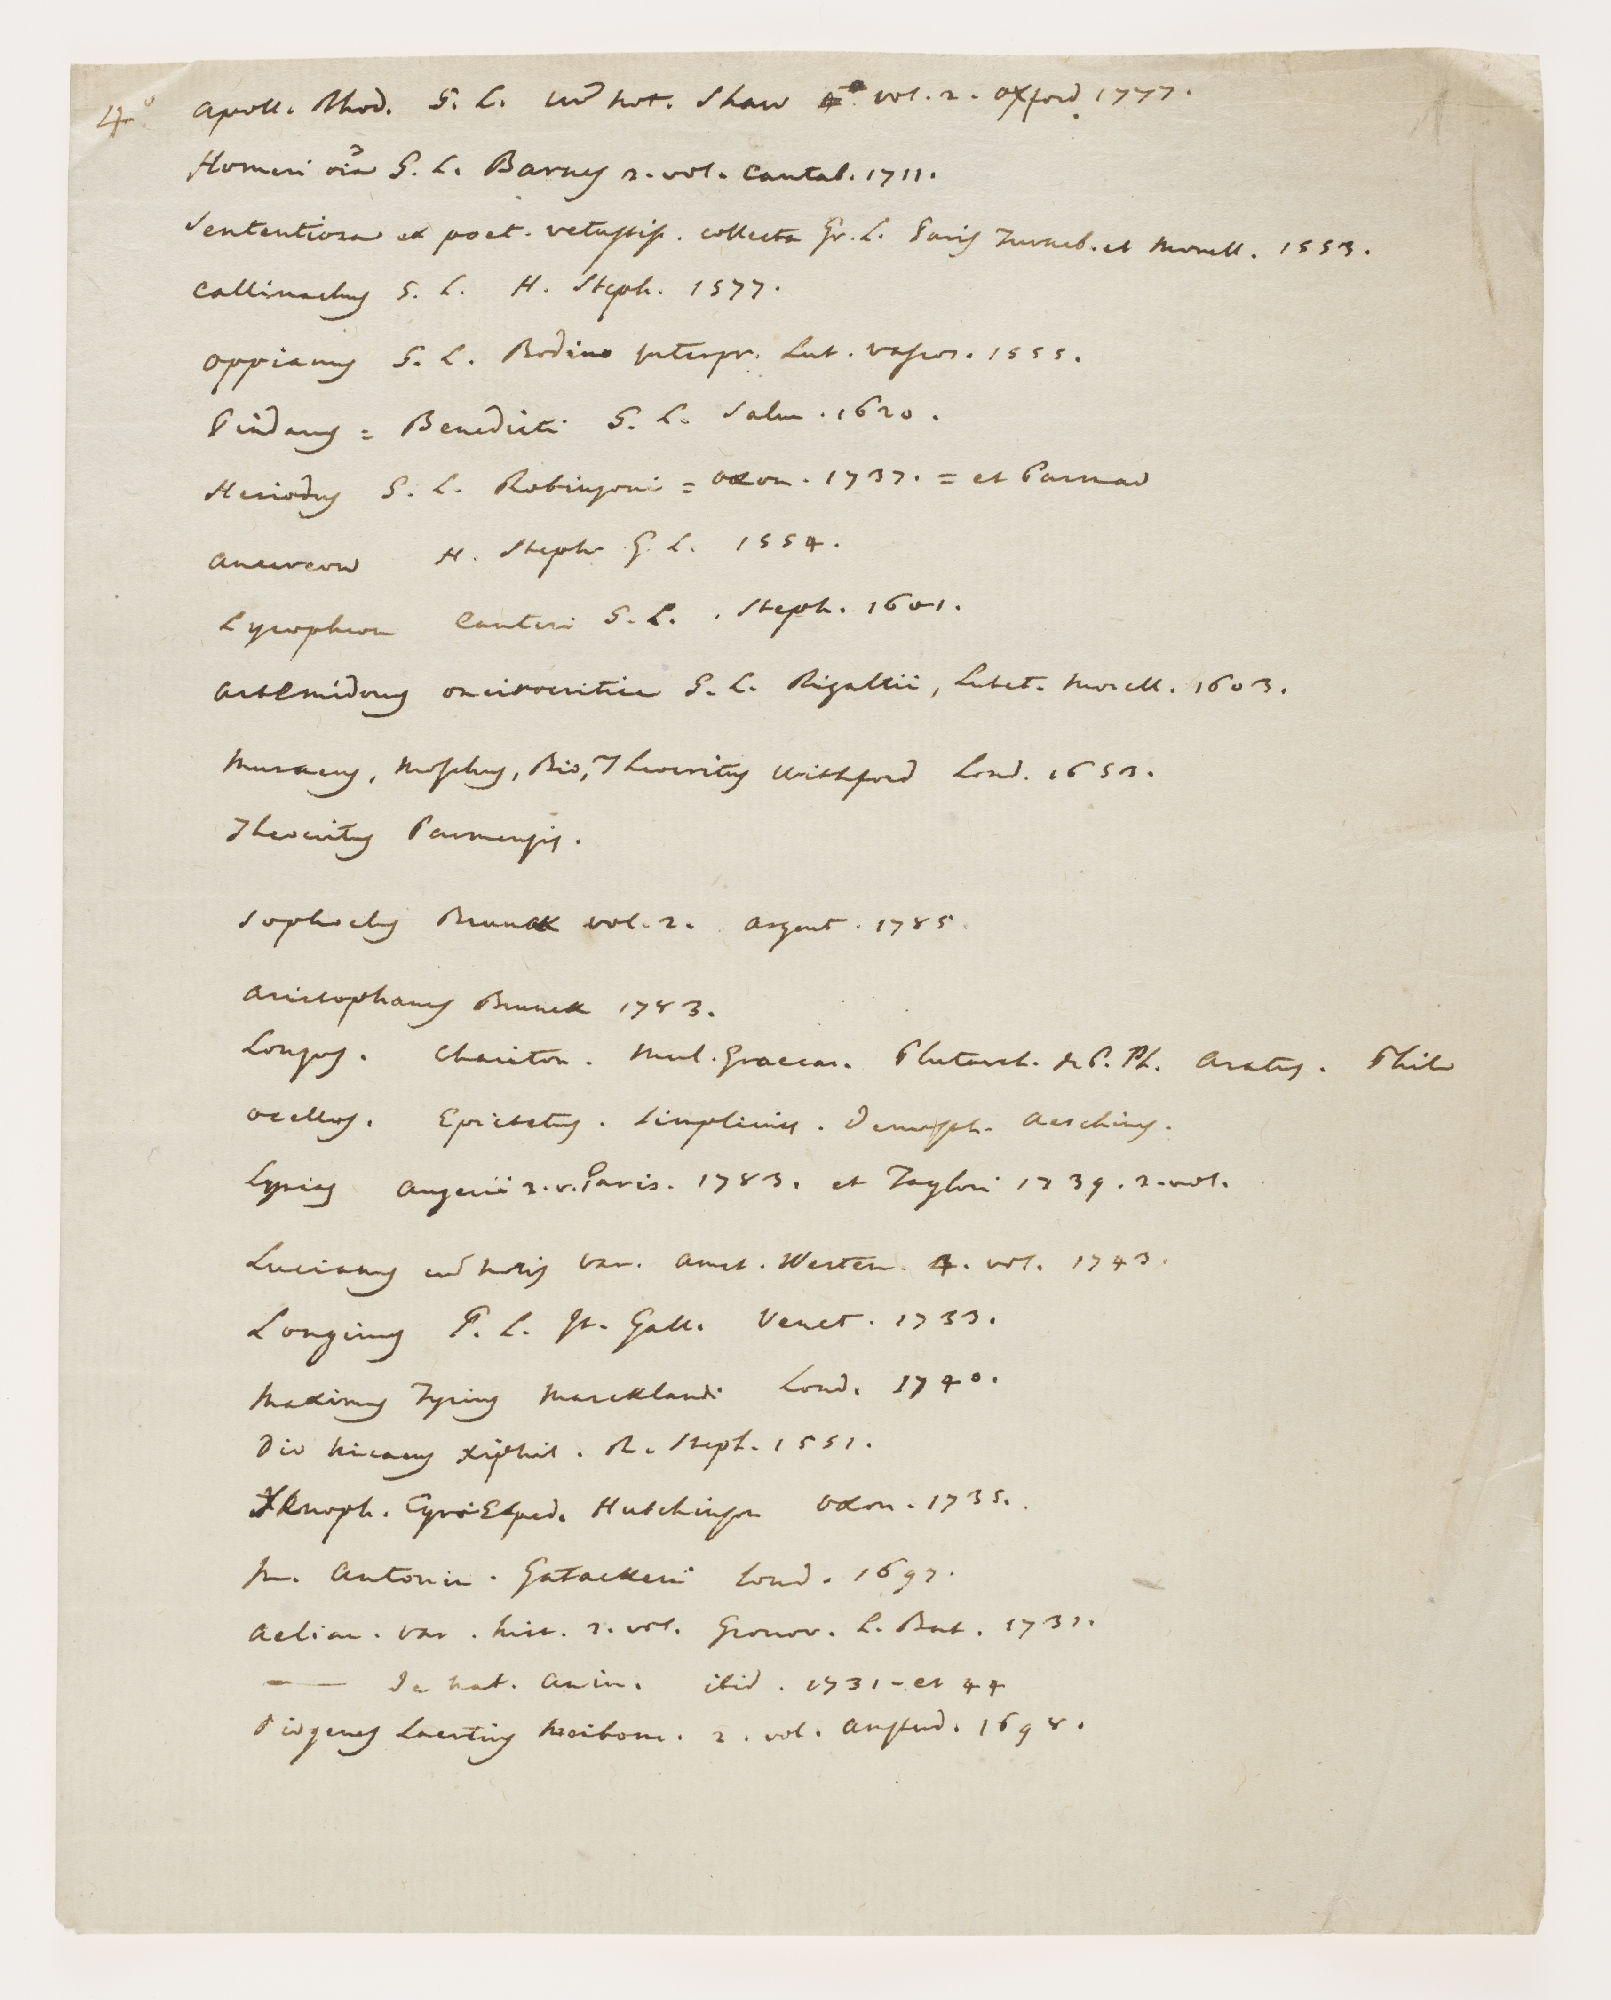 4° Apoll. Rhod. G. L. cum not. Shaw 4° vol. 2. Oxford 1777.
Homeri oia G. L. Barnes 2. vol. Cantab. 1711.
Sententiosa ex poet. vetustiss. collecta Gr. L. Paris Turneb. et Morell. 1553.
Callimachus G. L. H. Steph. 1577.
Oppianus G. L. Bodino interpr. Lut. Vascos. 1555.
Pindarus = Benedicti G. L. Salm. 1620.
Hesiodus G. L. Robinsoni = Oxon. 1737. = et Parmae
Anacreon H. Steph. G. L. 1554.
Lycophron Canteri G. L. . Steph. 1601.
Artemidorus oneirocritica G. L. Rigaltii, Lutet. Morell. 1603.
Musaeus, Moschus, Bio, Theocritus Withford Lond. 1653.
Theocritus Parmensis.
Sophocles Brunck vol. 2. Argent. 1785.
Aristophanes Brunck 1783.
Longus. Chariton. Mul. Graecar. Plutarch. de P. Ph. Aratus. Philo
Ocellus. Epictetus. Simplicius. Demosth. Aeschines.
Lysias Augerii 2. v. Paris. 1783. et Taylori 1739. 2. vol.
Lucianus cum notis var. Amst. Wetsten. 4. vol. 1743.
Longinus G. L. It. Gall. Venet. 1733.
Maximus Tyrius Marcklandi Lond. 1740.
Dio Nicaeus Xiphil. R. Steph. 1551.
Xenoph. Cyri Exped. Hutchinson Oxon. 1735.
M. Antonin. Gatackeri Lond. 1697.
Aelian. var. hist. 2. vol. Gronov. L. Bat. 1731.
— de nat. anim. ibid. 1731 - et 44
Diogenes Laertius Meibom. 2. vol. Amstud. 1698.